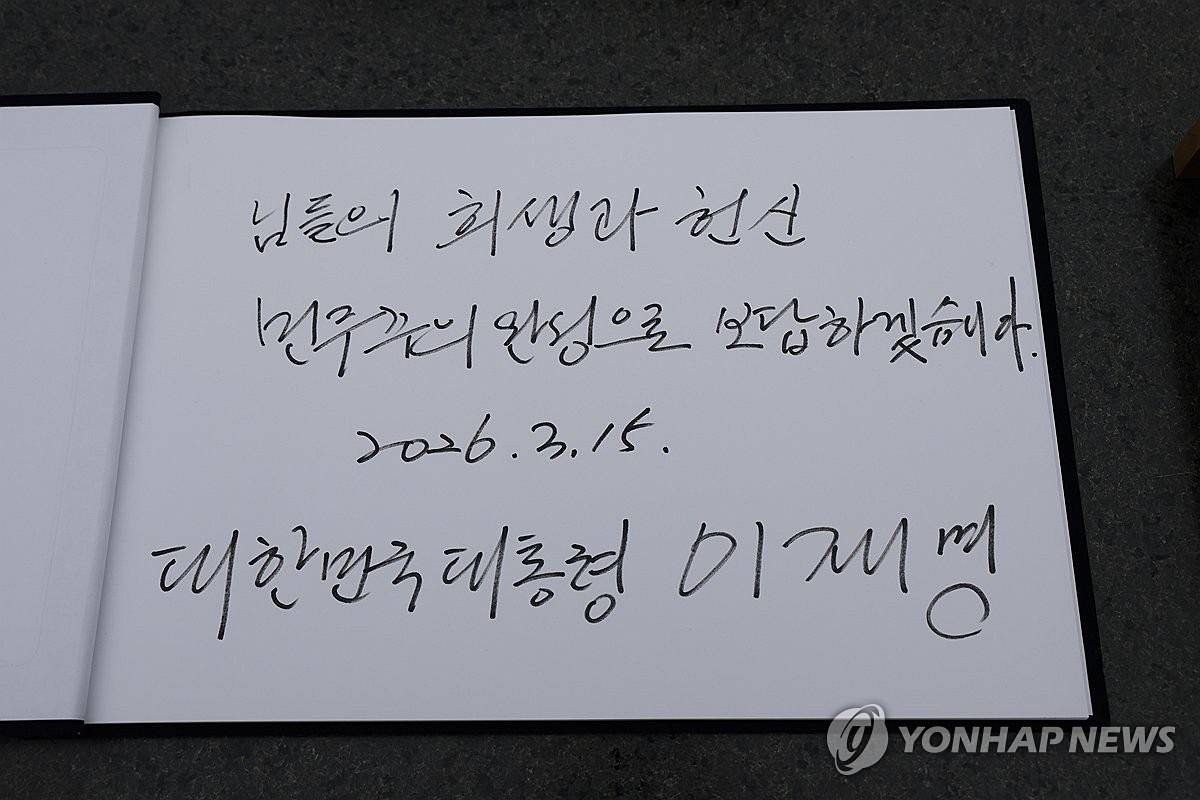 님들의 희생과 헌신
민주주의 완성으로 보답하겠습니다.
2026.3.15.
대한민국 대통령 이재명
YONHAP NEWS